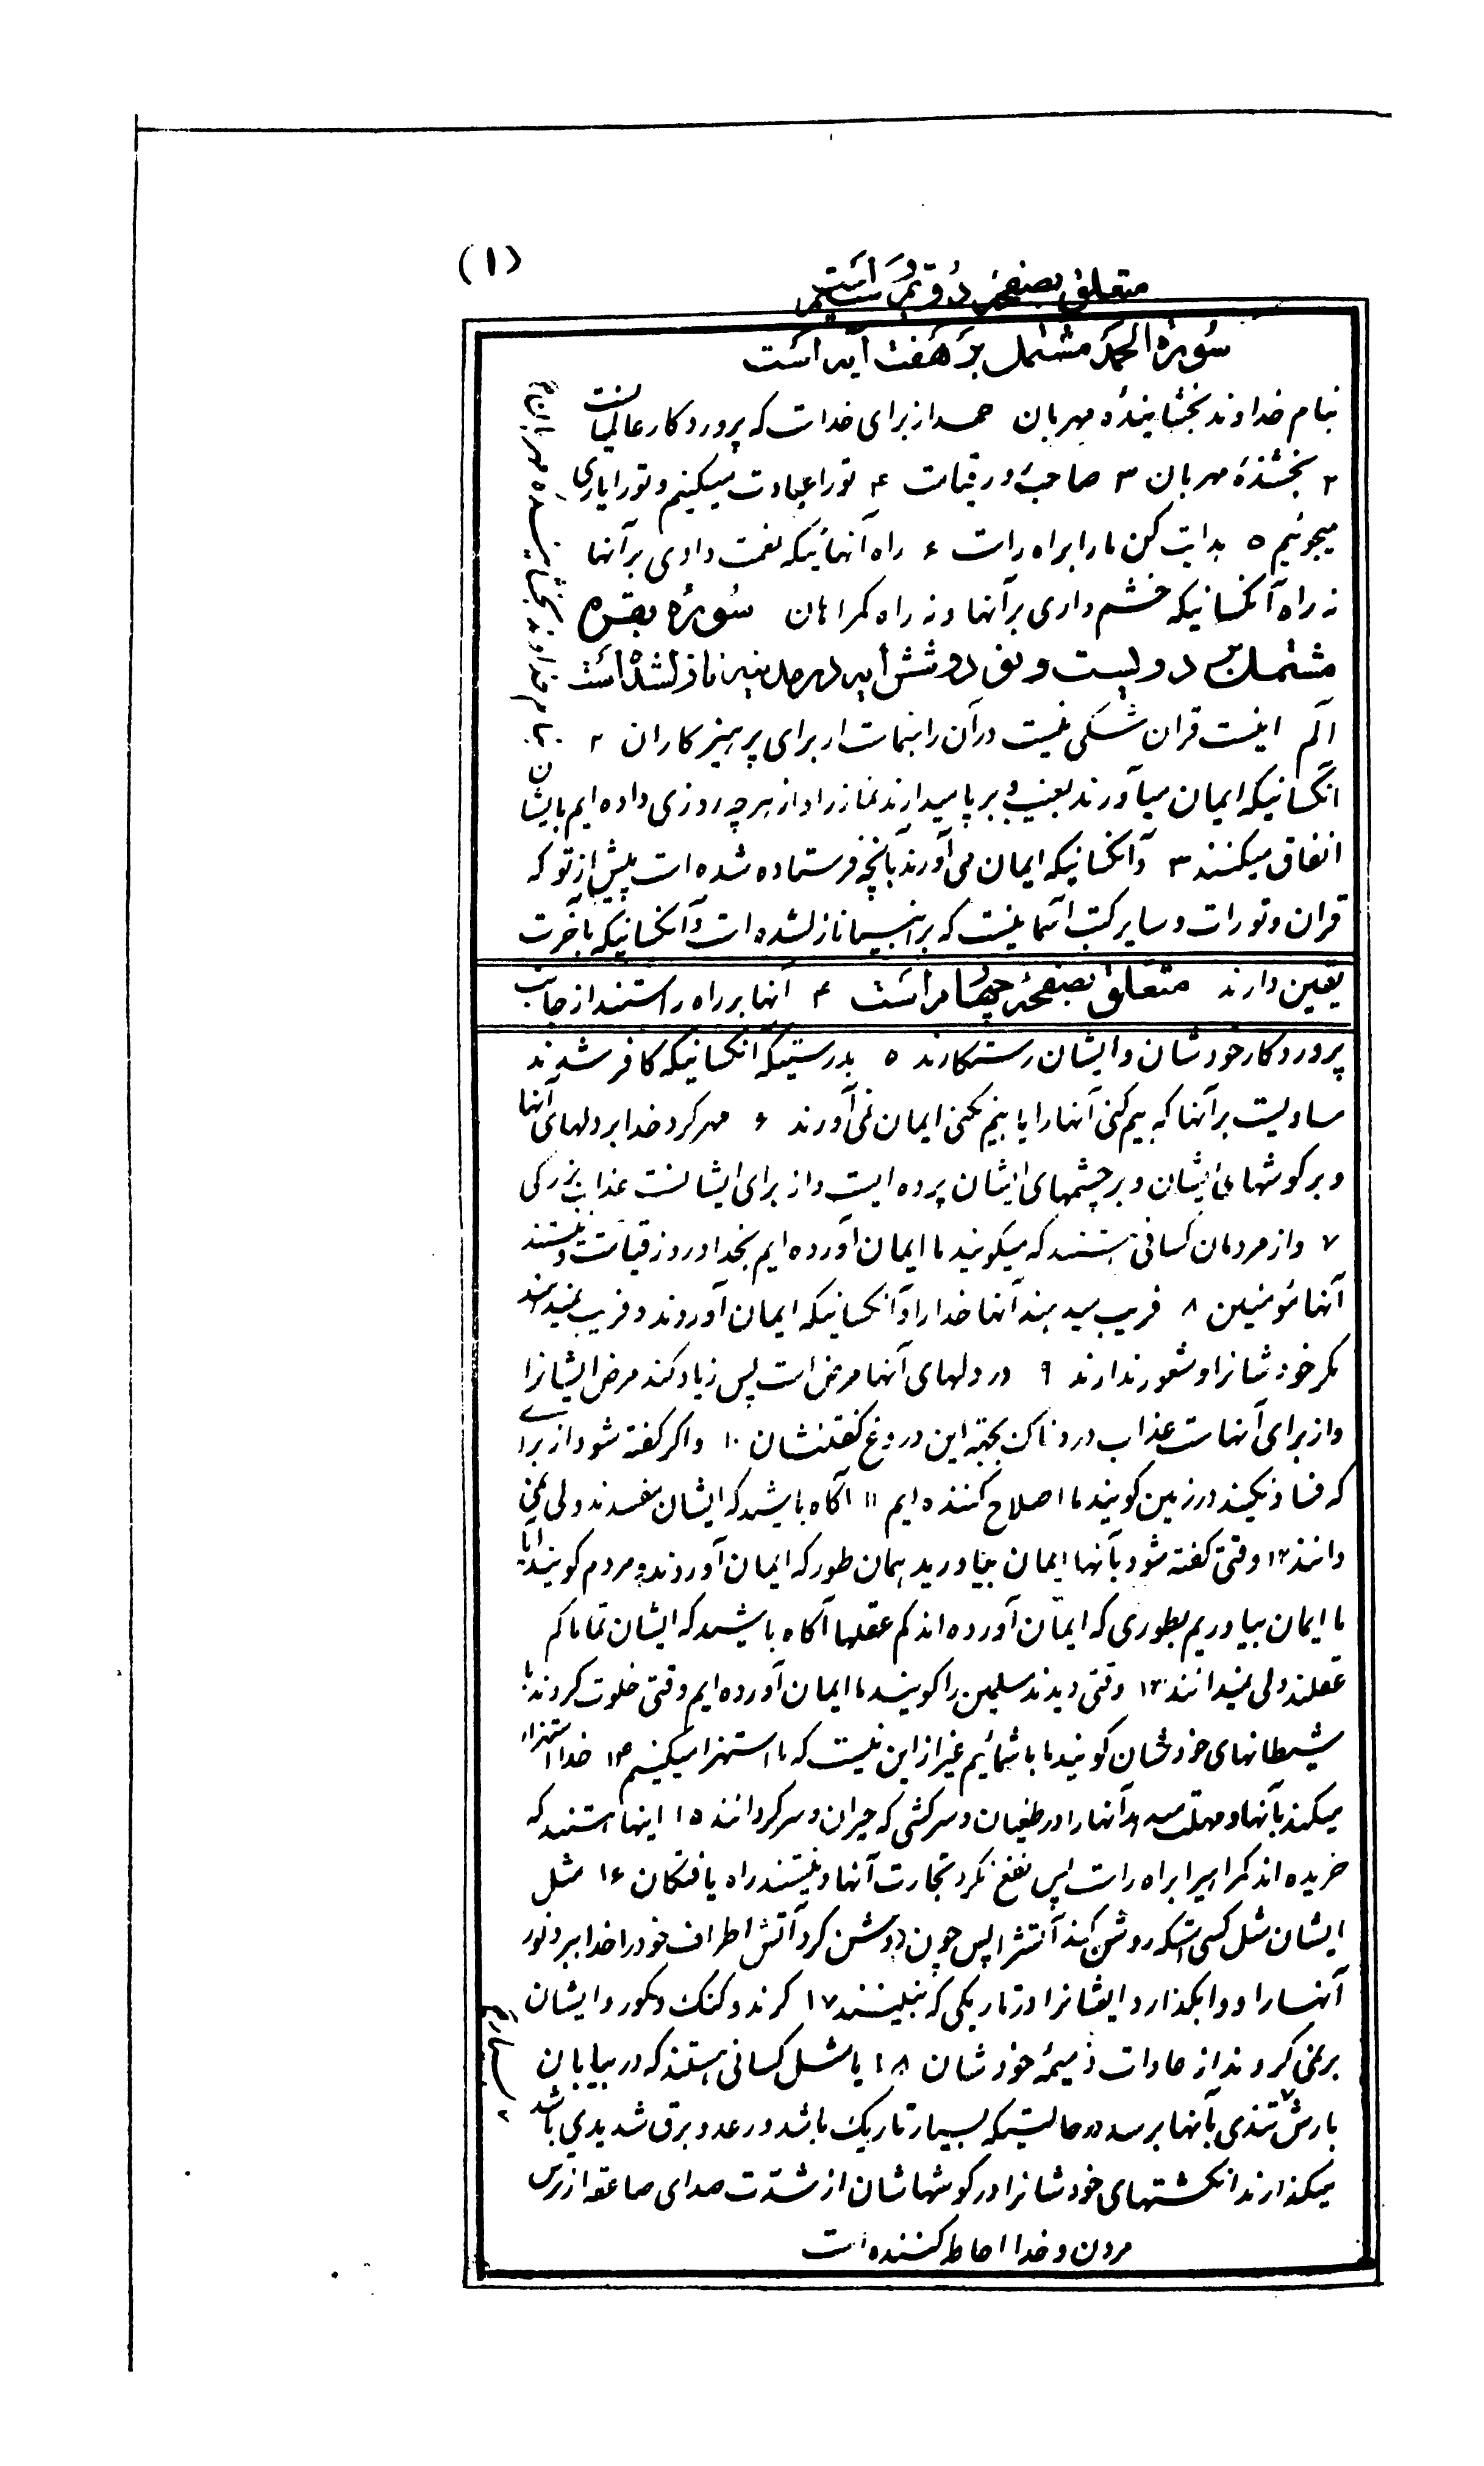 (۱)
متعلق بصفحهٔ دوّم و سیّم است
سورة الحمد مشتمل بر هفت آیه است
بنام خداوند بخشایندهٔ مهربان حمد از برای خداست که پروردگار عالمیانست
۲ بخشندهٔ مهربان ۳ صاحب روز قیامت ۴ تورا عبادت میکنیم و تورا یاری
میجوئیم ۵ هدایت کن مارا براه راست ۶ راه آنهائیکه نعمت دادی برآنها
نه راه آنکسانیکه خشم داری برآنها و نه راه کمراهان سورهٔ بقره
مشتمل بر دویست و نود و شش آیه در مدینه نازلشده است
بنام خداوند بخشاینده مهربان
الم اینست قران شکی نیست درآن راهنماست از برای پرهیزکاران ۲
آنکسانیکه ایمان میآورند بغیب و برپا میدارند نماز را و از هرچه روزی داده ایم بایشان
انفاق میکنند ۳ و آنکسانیکه ایمان می آورند بآنچه فرستاده شده است پیش از تو که
قران و تورات و سایر کتب آسمانیست که بر انبیا نازلشده است و آنکسانیکه بآخرت
یقین دارند متعلق بصفحهٔ چهارم است ۴ آنها بر راه راستند از جانب
پروردکار خودشان و ایشان رستکارند ۵ بدرستیکه آنکسانیکه کافر شدند
مساویست برآنها که بیم کنی آنها را یا بیم نکنی ایمان نمی آورند ۶ مهر کرد خدا بر دلهای آنها
و بر کوشهای ایشان و بر چشمهای ایشان پرده ایست و از برای ایشانست عذاب بزرکی
۷ و از مردمان کسانی هستند که میکویند ما ایمان آورده ایم بخدا و روز قیامت و نیستند
آنها مؤمنین ۸ فریب میدهند آنها خدا را و آنکسانیکه ایمان آوردند و فریب نمیدهند
مکر خودشانرا و شعور ندارند ۹ در دلهای آنها مرض است پس زیاد کند مرض ایشانرا
و از برای آنهاست عذاب دردناک بجهة این دروغ کفتنشان ۱۰ و اکر کفته شود از برای
که فساد نکنید در زمین کویند ما اصلاح کننده ایم ۱۱ آکاه باشید که ایشان مفسدند ولی نمی
دانند ۱۲ وقتی کفته شود بآنها ایمان بیاورید همان طور که ایمان آوردند مردم کویند آیا
ما ایمان بیاوریم بطوری که ایمان آورده اند کم عقلها آکاه باشید که ایشان تماما کم
عقلند ولی نمیدانند ۱۳ وقتی دیدند مسلمین را کویند ما ایمان آورده ایم وقتی خلوت کردند با
شیطانهای خودشان کویند ما با شمائیم غیر از این نیست که ما استهزا میکنیم ۱۴ خدا استهزاء
میکند بآنها و مهلت میدهد آنها را در طغیان و سرکشی که حیران و سرکردانند ۱۵ اینها هستند که
خریده اند کمراهیرا براه راست پس نفع نکرد تجارت آنها و نیستند راه یافتکان ۱۶ مثل
ایشان مثل کسی استکه روشن کند آتشرا پس چون روشن کرد آتش اطراف خود را خدا ببرد نور
آنها را و وا بکذارد ایشانرا در تاریکی که نبینند ۱۷ کرند و کنک و کور و ایشان
برنمی کردند از عادات ذمیمهٔ خودشان ۱۸ یا مثل کسانی هستند که در بیابان
بارش تندی بآنها برسد در حالتیکه بسیار تاریک باشد و رعد و برق شدیدی باشد
میکذارند انکشتهای خودشانرا در کوشهاشان از شدّت صدای صاعقه از ترس
مردن و خدا احاطه کننده است